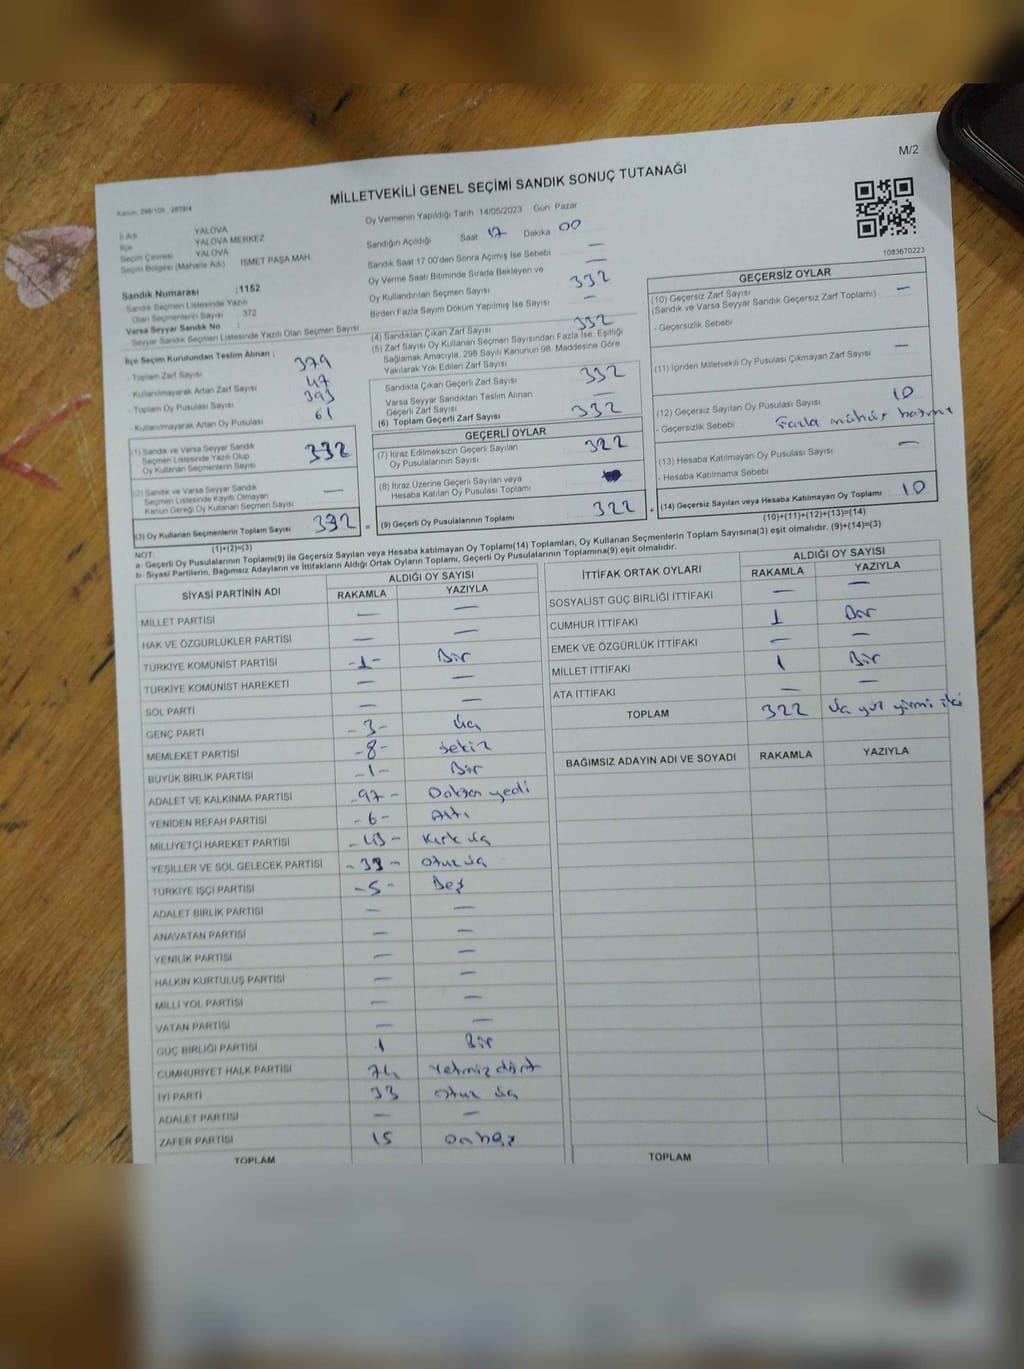 M/2
MİLLETVEKİLİ GENEL SEÇİMİ SANDIK SONUÇ TUTANAĞI
Oy Vermenin Yapıldığı Tarih 14/05/2023 Gün Pazar
İl Adı YALOVA
İlçe YALOVA MERKEZ
Seçim Çevresi YALOVA
Seçim Bölgesi (Mahalle Adı) İSMET PAŞA MAH.
Sandığın Açıldığı Saat 17 Dakika 00
Sandık Saat 17:00'den Sonra Açılmış İse Sebebi —
Oy Verme Saati Bitiminde Sırada Bekleyen ve —
Oy Kullandırılan Seçmen Sayısı 332
Birden Fazla Sayım Döküm Yapılmış İse Sayısı —
Sandık Numarası :1152
Sandık Seçmen Listesinde Yazılı
Olan Seçmenlerin Sayısı 372
Varsa Seyyar Sandık No :
- Seyyar Sandık Seçmen Listesinde Yazılı Olan Seçmen Sayısı
İlçe Seçim Kurulundan Teslim Alınan :
- Toplam Zarf Sayısı 379
- Kullanılmayarak Artan Zarf Sayısı 47
- Toplam Oy Pusulası Sayısı 393
- Kullanılmayarak Artan Oy Pusulası 61
(1) Sandık ve Varsa Seyyar Sandık
Seçmen Listesinde Yazılı Olup
Oy Kullanan Seçmenlerin Sayısı 332
(2) Sandık ve Varsa Seyyar Sandık
Seçmen Listesinde Kayıtlı Olmayan
Kanun Gereği Oy Kullanan Seçmen Sayısı —
(3) Oy Kullanan Seçmenlerin Toplam Sayısı 332 =
(1)+(2)=(3)
(4) Sandıktan Çıkan Zarf Sayısı 332
(5) Zarf Sayısı Oy Kullanan Seçmen Sayısından Fazla İse, Eşitliği
Sağlamak Amacıyla, 298 Sayılı Kanunun 98. Maddesine Göre
Yakılarak Yok Edilen Zarf Sayısı
Sandıkta Çıkan Geçerli Zarf Sayısı 332
Varsa Seyyar Sandıktan Teslim Alınan
Geçerli Zarf Sayısı —
(6) Toplam Geçerli Zarf Sayısı 332
GEÇERLİ OYLAR
(7) İtiraz Edilmeksizin Geçerli Sayılan
Oy Pusulalarının Sayısı 322
(8) İtiraz Üzerine Geçerli Sayılan veya
Hesaba Katılan Oy Pusulası Toplamı
(9) Geçerli Oy Pusulalarının Toplamı 322 +
1083670223
GEÇERSİZ OYLAR
(10) Geçersiz Zarf Sayısı —
(Sandık ve Varsa Seyyar Sandık Geçersiz Zarf Toplamı)
- Geçersizlik Sebebi
(11) İçinden Milletvekili Oy Pusulası Çıkmayan Zarf Sayısı —
(12) Geçersiz Sayılan Oy Pusulası Sayısı 10
- Geçersizlik Sebebi Fazla mühür basma
(13) Hesaba Katılmayan Oy Pusulası Sayısı —
- Hesaba Katılmama Sebebi
(14) Geçersiz Sayılan veya Hesaba Katılmayan Oy Toplamı 10
(10)+(11)+(12)+(13)=(14)
NOT:
a- Geçerli Oy Pusulalarının Toplamı(9) ile Geçersiz Sayılan veya Hesaba katılmayan Oy Toplamı(14) Toplamları, Oy Kullanan Seçmenlerin Toplam Sayısına(3) eşit olmalıdır. (9)+(14)=(3)
b- Siyasi Partilerin, Bağımsız Adayların ve İttifakların Aldığı Ortak Oyların Toplamı, Geçerli Oy Pusulalarının Toplamına(9) eşit olmalıdır.
SİYASİ PARTİNİN ADI ALDIĞI OY SAYISI
RAKAMLA YAZIYLA
MİLLET PARTİSİ — —
HAK VE ÖZGÜRLÜKLER PARTİSİ — —
TÜRKİYE KOMÜNİST PARTİSİ -1- Bir
TÜRKİYE KOMÜNİST HAREKETİ — —
SOL PARTİ — —
GENÇ PARTİ -3- Üç
MEMLEKET PARTİSİ -8- Sekiz
BÜYÜK BİRLİK PARTİSİ -1- Bir
ADALET VE KALKINMA PARTİSİ -97- Doksan yedi
YENİDEN REFAH PARTİSİ -6- Altı
MİLLİYETÇİ HAREKET PARTİSİ -43- Kırk üç
YEŞİLLER VE SOL GELECEK PARTİSİ -33- Otuz üç
TÜRKİYE İŞÇİ PARTİSİ -5- Beş
ADALET BİRLİK PARTİSİ — —
ANAVATAN PARTİSİ — —
YENİLİK PARTİSİ — —
HALKIN KURTULUŞ PARTİSİ — —
MİLLİ YOL PARTİSİ — —
VATAN PARTİSİ — —
GÜÇ BİRLİĞİ PARTİSİ 1 Bir
CUMHURİYET HALK PARTİSİ 74 Yetmiş dört
İYİ PARTİ 33 Otuz üç
ADALET PARTİSİ — —
ZAFER PARTİSİ 15 On beş
TOPLAM
İTTİFAK ORTAK OYLARI ALDIĞI OY SAYISI
RAKAMLA YAZIYLA
SOSYALİST GÜÇ BİRLİĞİ İTTİFAKI — —
CUMHUR İTTİFAKI 1 Bir
EMEK VE ÖZGÜRLÜK İTTİFAKI — —
MİLLET İTTİFAKI 1 Bir
ATA İTTİFAKI — —
TOPLAM 322 Üç yüz yirmi iki
BAĞIMSIZ ADAYIN ADI VE SOYADI RAKAMLA YAZIYLA
TOPLAM